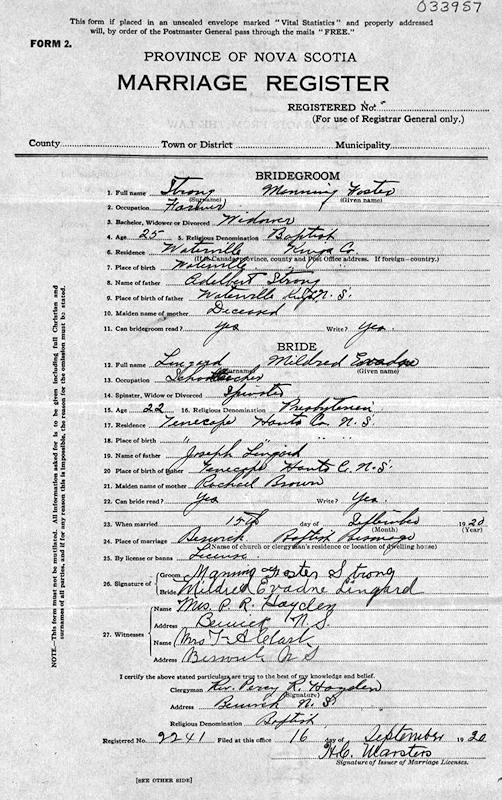 033957
This form if placed in an unsealed envelope marked "Vital Statistics" and properly addressed
will, by order of the Postmaster General pass through the mails "FREE."
FORM 2.
PROVINCE OF NOVA SCOTIA
MARRIAGE REGISTER
REGISTERED No.
(For use of Registrar General only.)
County Town or District Municipality
BRIDEGROOM
1. Full name Strong Manning Foster
(Surname) (Given name)
2. Occupation Farmer
3. Bachelor, Widower or Divorced Widower
4. Age 25 5. Religious Denomination Baptist
6. Residence Waterville Kings Co.
(If in Canada province, county and Post Office address. If foreign—country.)
7. Place of birth Waterville " "
8. Name of father Adelbert Strong
9. Place of birth of father Waterville Kings N. S.
10. Maiden name of mother Deceased
11. Can bridegroom read? yes Write? yes.
BRIDE
12. Full name Lingard Mildred Evadne
(Surname) (Given name)
13. Occupation School teacher
14. Spinster, Widow or Divorced Spinster
15. Age 22 16. Religious Denomination Presbyterian
17. Residence Tenecape Hants Co. N. S.
18. Place of birth " " "
19. Name of father Joseph Lingard
20. Place of birth of father Tenecape Hants C. N. S.
21. Maiden name of mother Rachael Brown
22. Can bride read? yes Write? yes.
23. When married 15th day of September 1920
(Month) (Year)
24. Place of marriage Berwick Baptist Parsonage
(Name of church or clergyman's residence or location of dwelling house)
25. By license or banns License
26. Signature of Groom Manning Foster Strong
Bride Mildred Evadne Lingard
27. Witnesses
Name Mrs. P. R. Hayden
Address Berwick N. S.
Name Mrs T A Clark
Address Berwick N S
I certify the above stated particulars are true to the best of my knowledge and belief.
Clergyman Rev. Percy R. Hayden
(Signature)
Address Berwick N. S.
Religious Denomination Baptist
Registered No. 2241 Filed at this office 16 day of September 1920
H.C. Marsters
Signature of Issuer of Marriage Licenses.
[SEE OTHER SIDE]
NOTE—This form must not be mutilated. All information asked for is to be given including full Christian and
surnames of all parties, and if for any reason this is impossible, the reason for the omission must be stated.